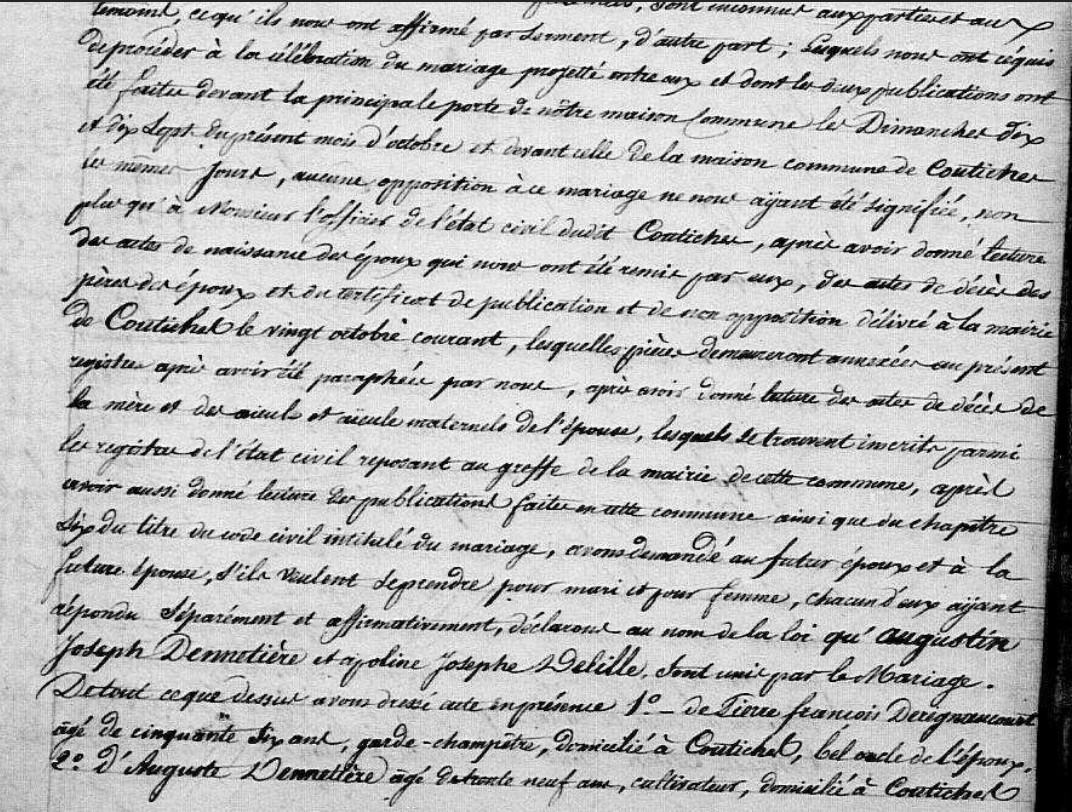 sont inconnus aux parties et aux
temoins, ce qu'ils nous ont affirmé par serment, d'autre part ; lesquels nous ont réquis
de procéder à la célébration du mariage projetté entre eux et dont les deux publications ont
été faites devant la principale porte de nôtre maison Commune les Dimanches dix
et dix sept du présent mois d'octobre et devant celle de la maison commune de Coutiches
les memes jours, aucune opposition à ce mariage ne nous aÿant été signifiée, non
plus qu'à Monsieur l'officier de l'état civil dudit Coutiches, après avoir donné lecture
des actes de naissance des époux qui nous ont été remis par eux, des actes de décès des
pères des époux et du certificat de publication et de non opposition délivré à la mairie
de Coutiches le vingt octobre courant, lesquelles pièces demeureront annexées au présent
registre après avoir été paraphées par nous, après avoir donné lecture des actes de décès de
la mère et des aieuls et aïeule maternels de l'épouse, lesquels se trouvent inscrits parmi
les registres de l'état civil reposant au greffe de la mairie de cette commune, après
avoir aussi donné lecture des publications faites en cette commune ainsi que du chapitre
six du titre du code civil intitulé du mariage, avons demandé au futur époux et à la
future épouse, s'ils veulent se prendre pour mari et pour femme, chacun d'eux aÿant
répondu séparément et affirmativement, déclarons au nom de la loi qu'augustin
Joseph Dennetière et apoline Josephe Delille, sont unis par le Mariage.
De tout ce que dessus avons dressé acte en présence 1° - de Pierre françois Deregnaucourt
âgé de cinquante six ans, garde-champêtre, domicilié à Coutiches, bel oncle de l'époux.
2° d'Auguste Dennetière âgé de trente neuf ans, cultivateur, domicilié à Coutiches